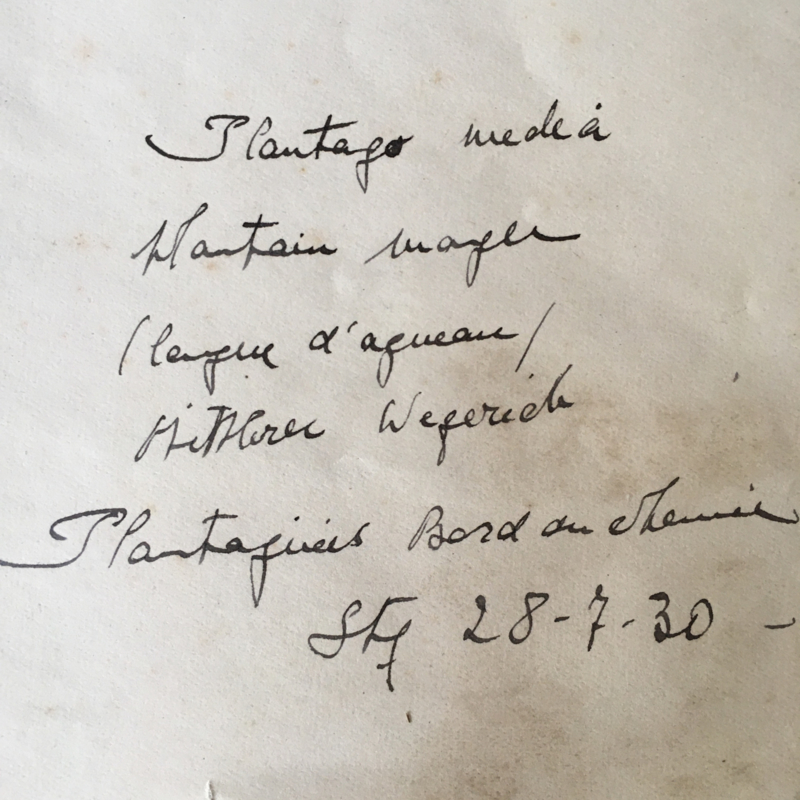 Plantago media
Plantain moyen
(langue d'agneau)
Mittlerer Wegerich
Plantaginées Bord du chemin
Stg 28-7-30 -